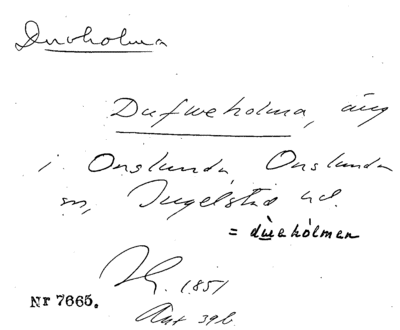 Duvholma
Dufweholma, äng
i Onslunda, Onslunda
sn, Ingelstad hd.
= dùehòlmen
1851
Akt 39b
Nr 7665.